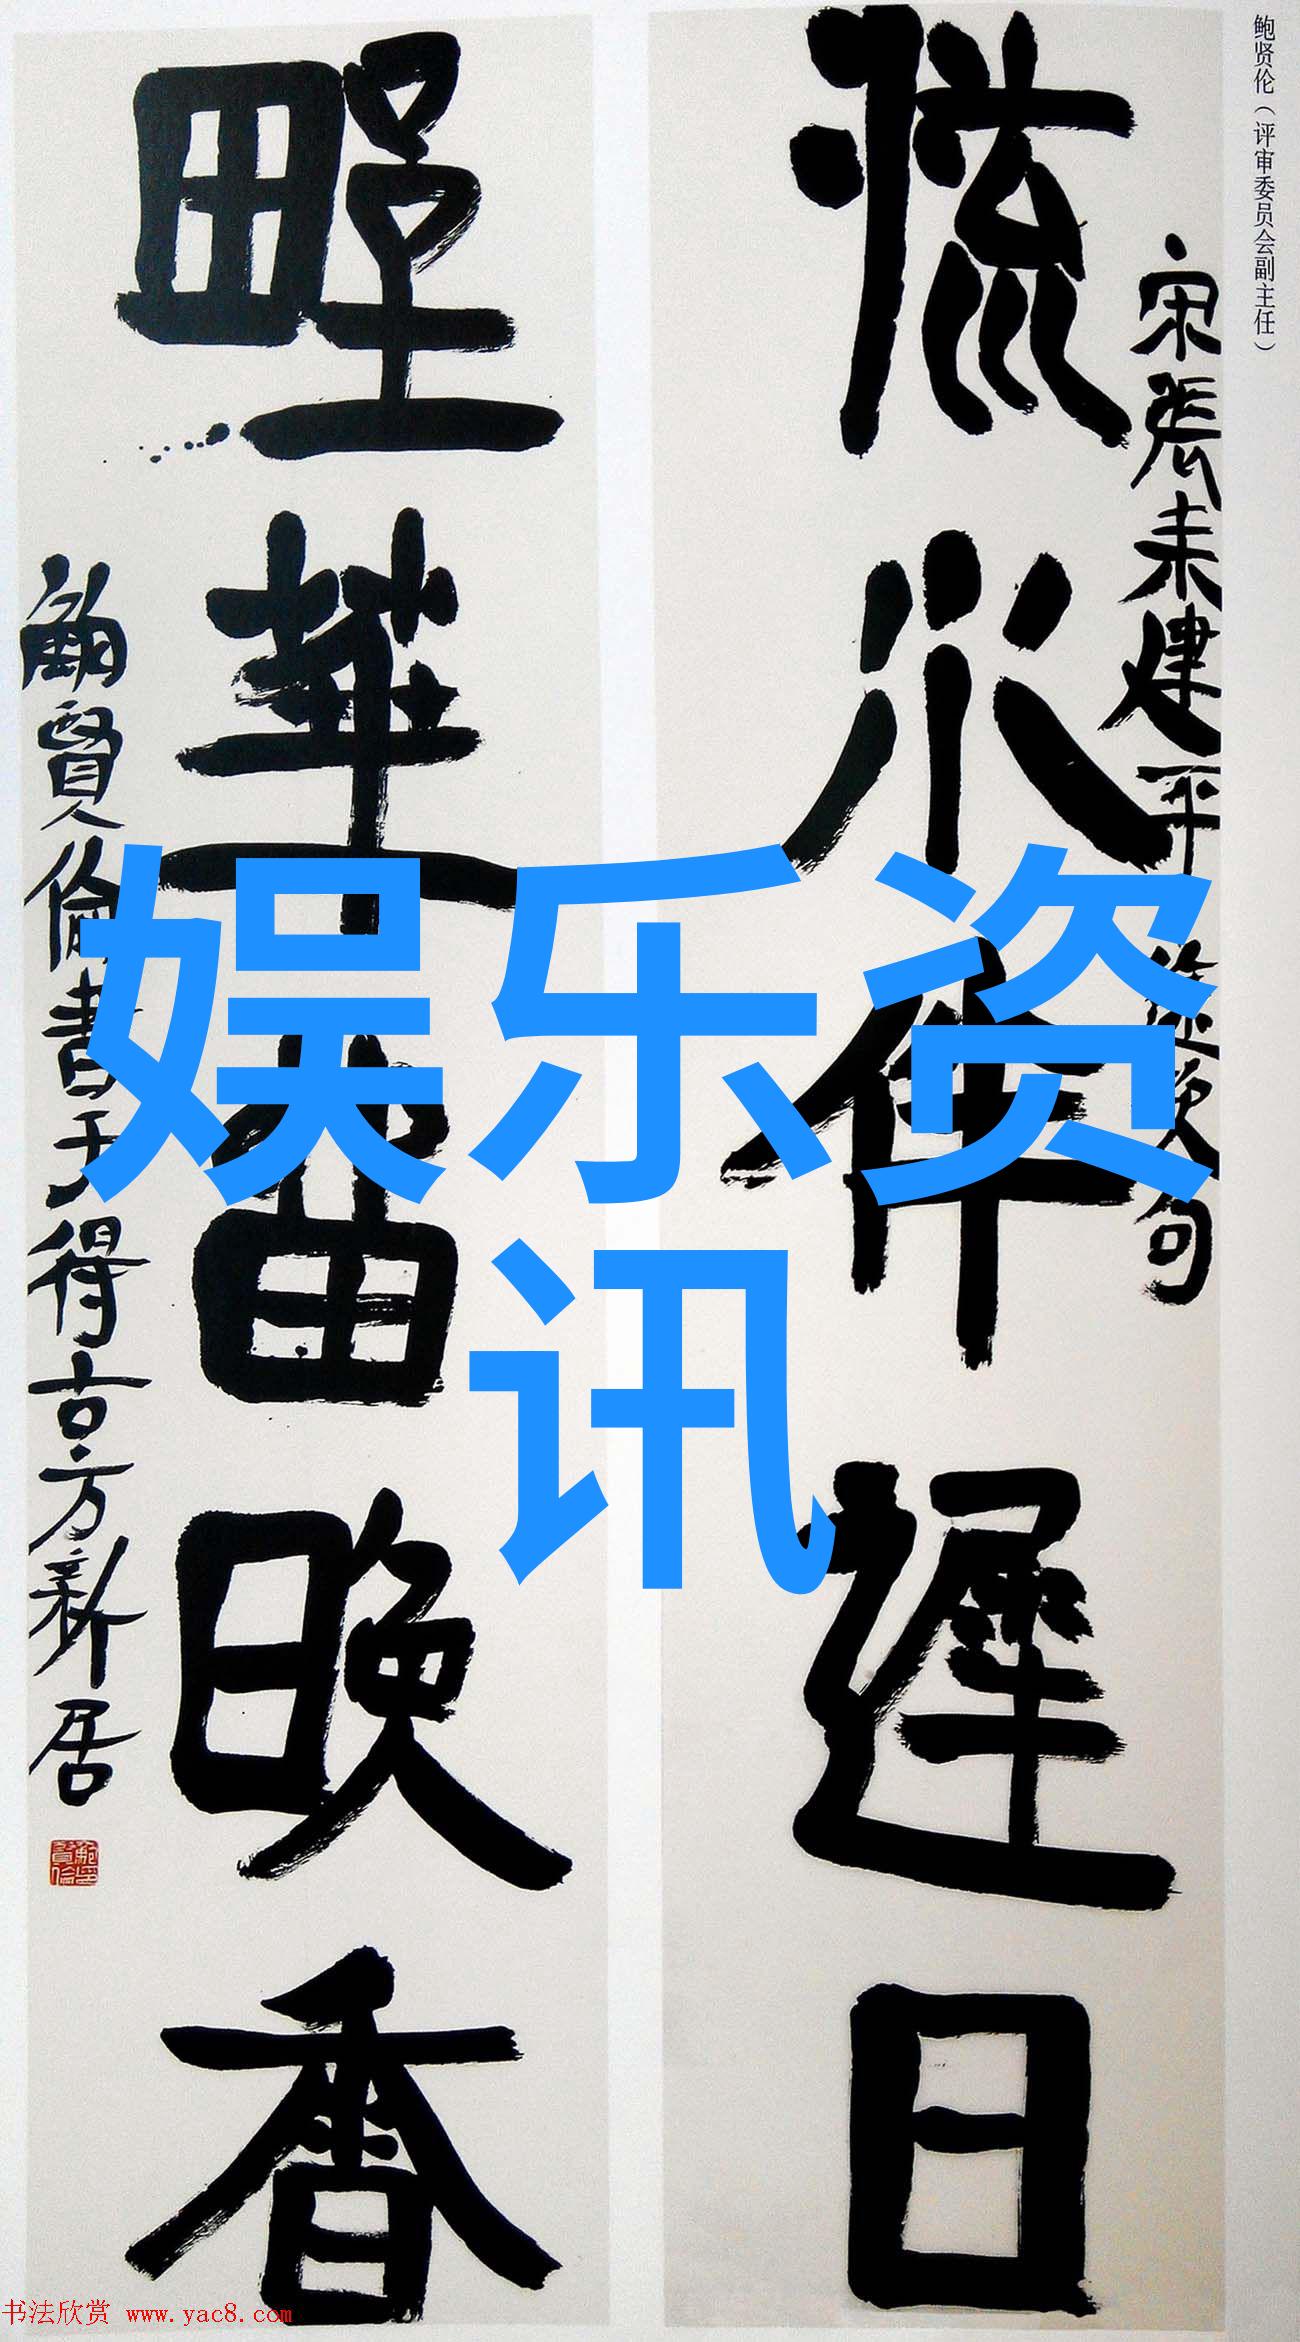 鲍贤伦（评审委员会副主任）
宋張耒建平途次句
流水伴遲日
野華留晚香
鮑賢倫書于得古方新居
娱乐资
讯
书法欣赏 www.yac8.com